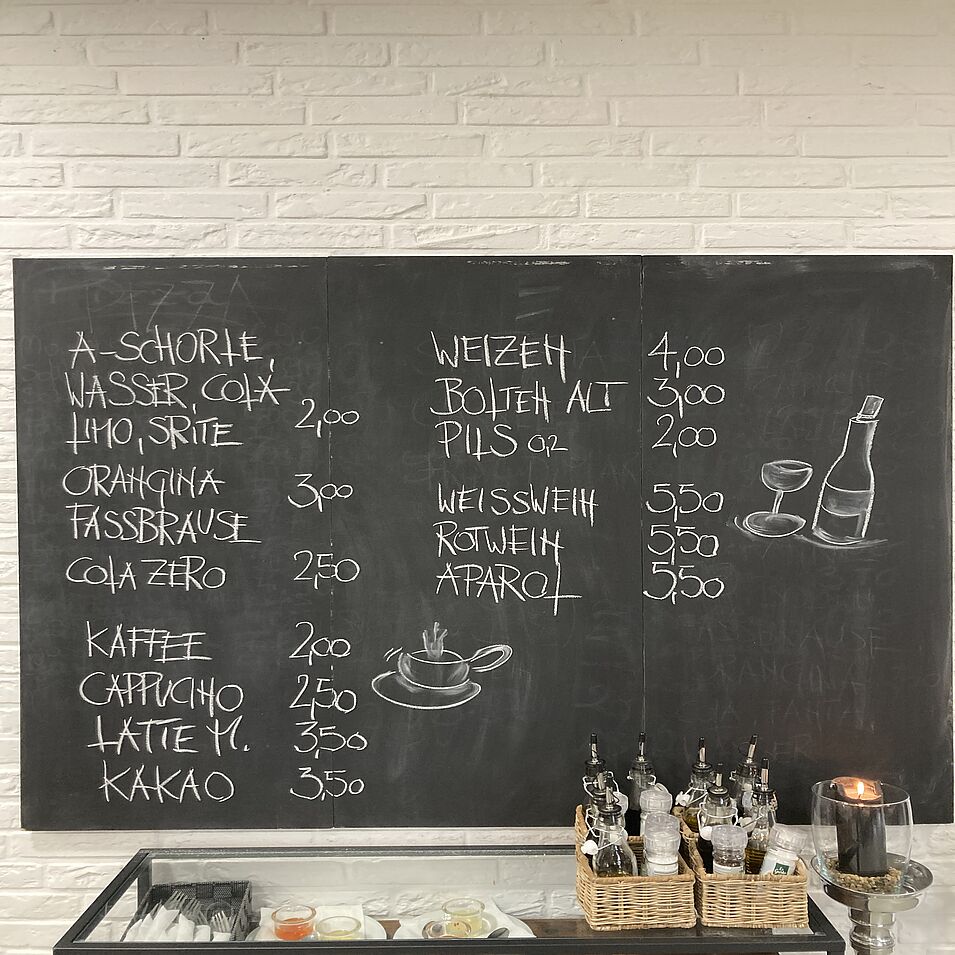 PIZZA
A-SCHORLE,
WASSER, COLA
LIMO, SRITE 2,00
ORANGINA 3,00
FASSBRAUSE
COLA ZERO 2,50
KAFFEE 2,00
CAPPUCINO 2,50
LATTE M. 3,50
KAKAO 3,50
WEIZEN 4,00
BOLTEN ALT 3,00
PILS 0,2 2,00
WEISSWEIN 5,50
ROTWEIN 5,50
APAROL 5,50